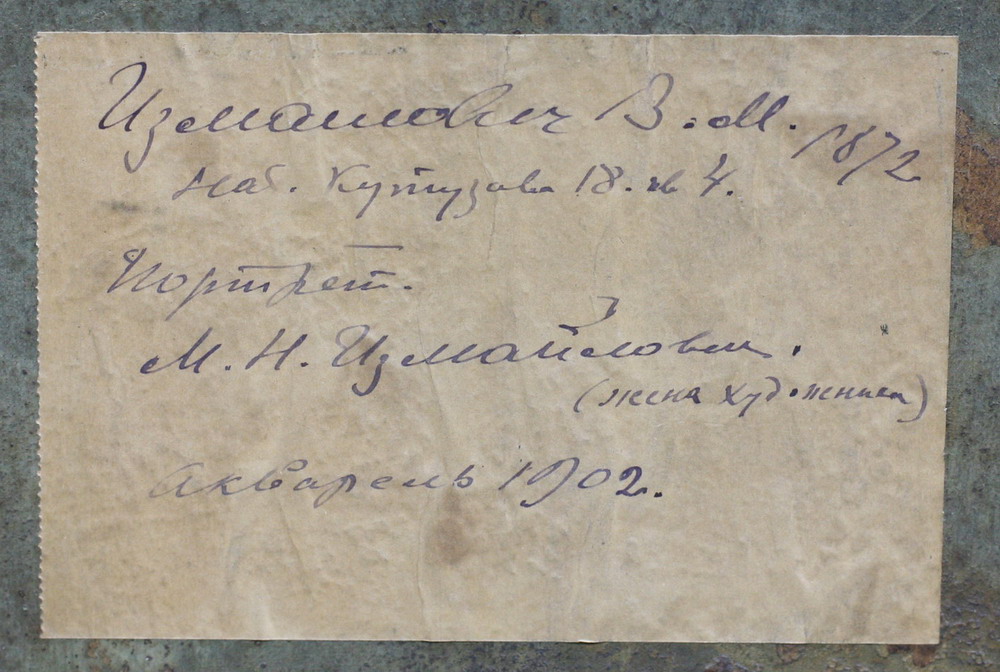 Измаилович В.М. 1872
наб. Кутузова 18. кв 4.
Портрет.
М. Н. Измайлович.
(жена художника)
Акварель 1902.